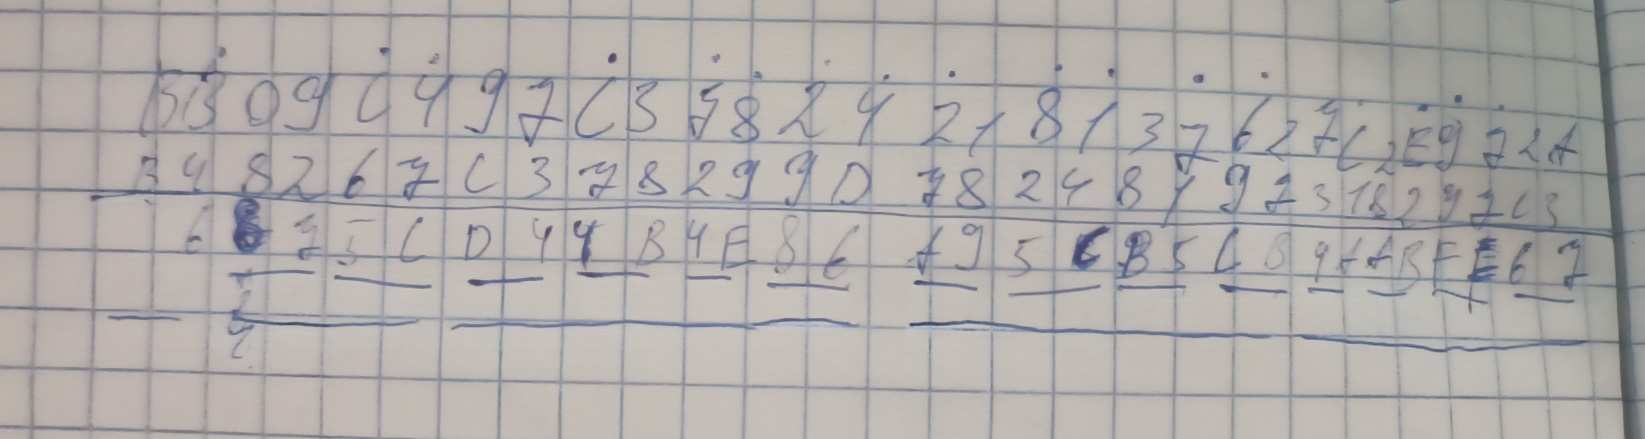 BB09C497C3782421813762 7C2E972A
B48267C378299D78248197318297C3
6875CD44B4E86A95CB5CB4AABFE67